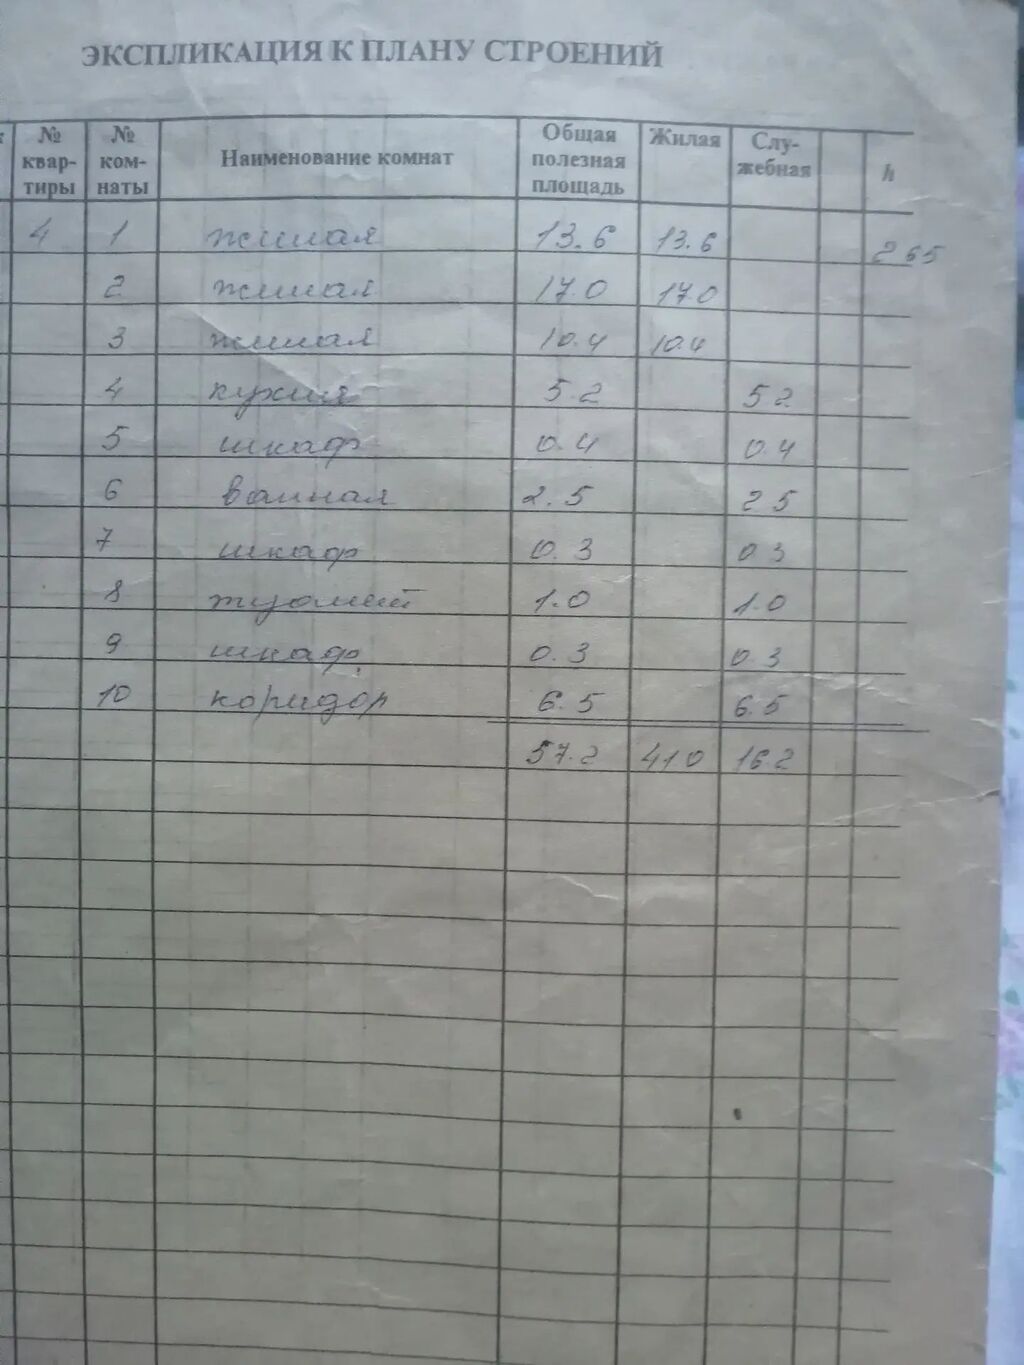 ЭКСПЛИКАЦИЯ К ПЛАНУ СТРОЕНИЙ
№ квар- тиры № ком- наты Наименование комнат Общая полезная площадь Жилая Слу- жебная h
4 1 жилая 13.6 13.6 2 65
2 жилая 17.0 17.0
3 жилая 10.4 10.4
4 кухня 5.2 5 2
5 шкаф 0.4 0.4
6 ванная 2.5 2 5
7 шкаф 0.3 0 3
8 туалет 1.0 1.0
9 шкаф 0.3 0.3
10 коридор 6.5 6.5
57.2 41 0 16.2